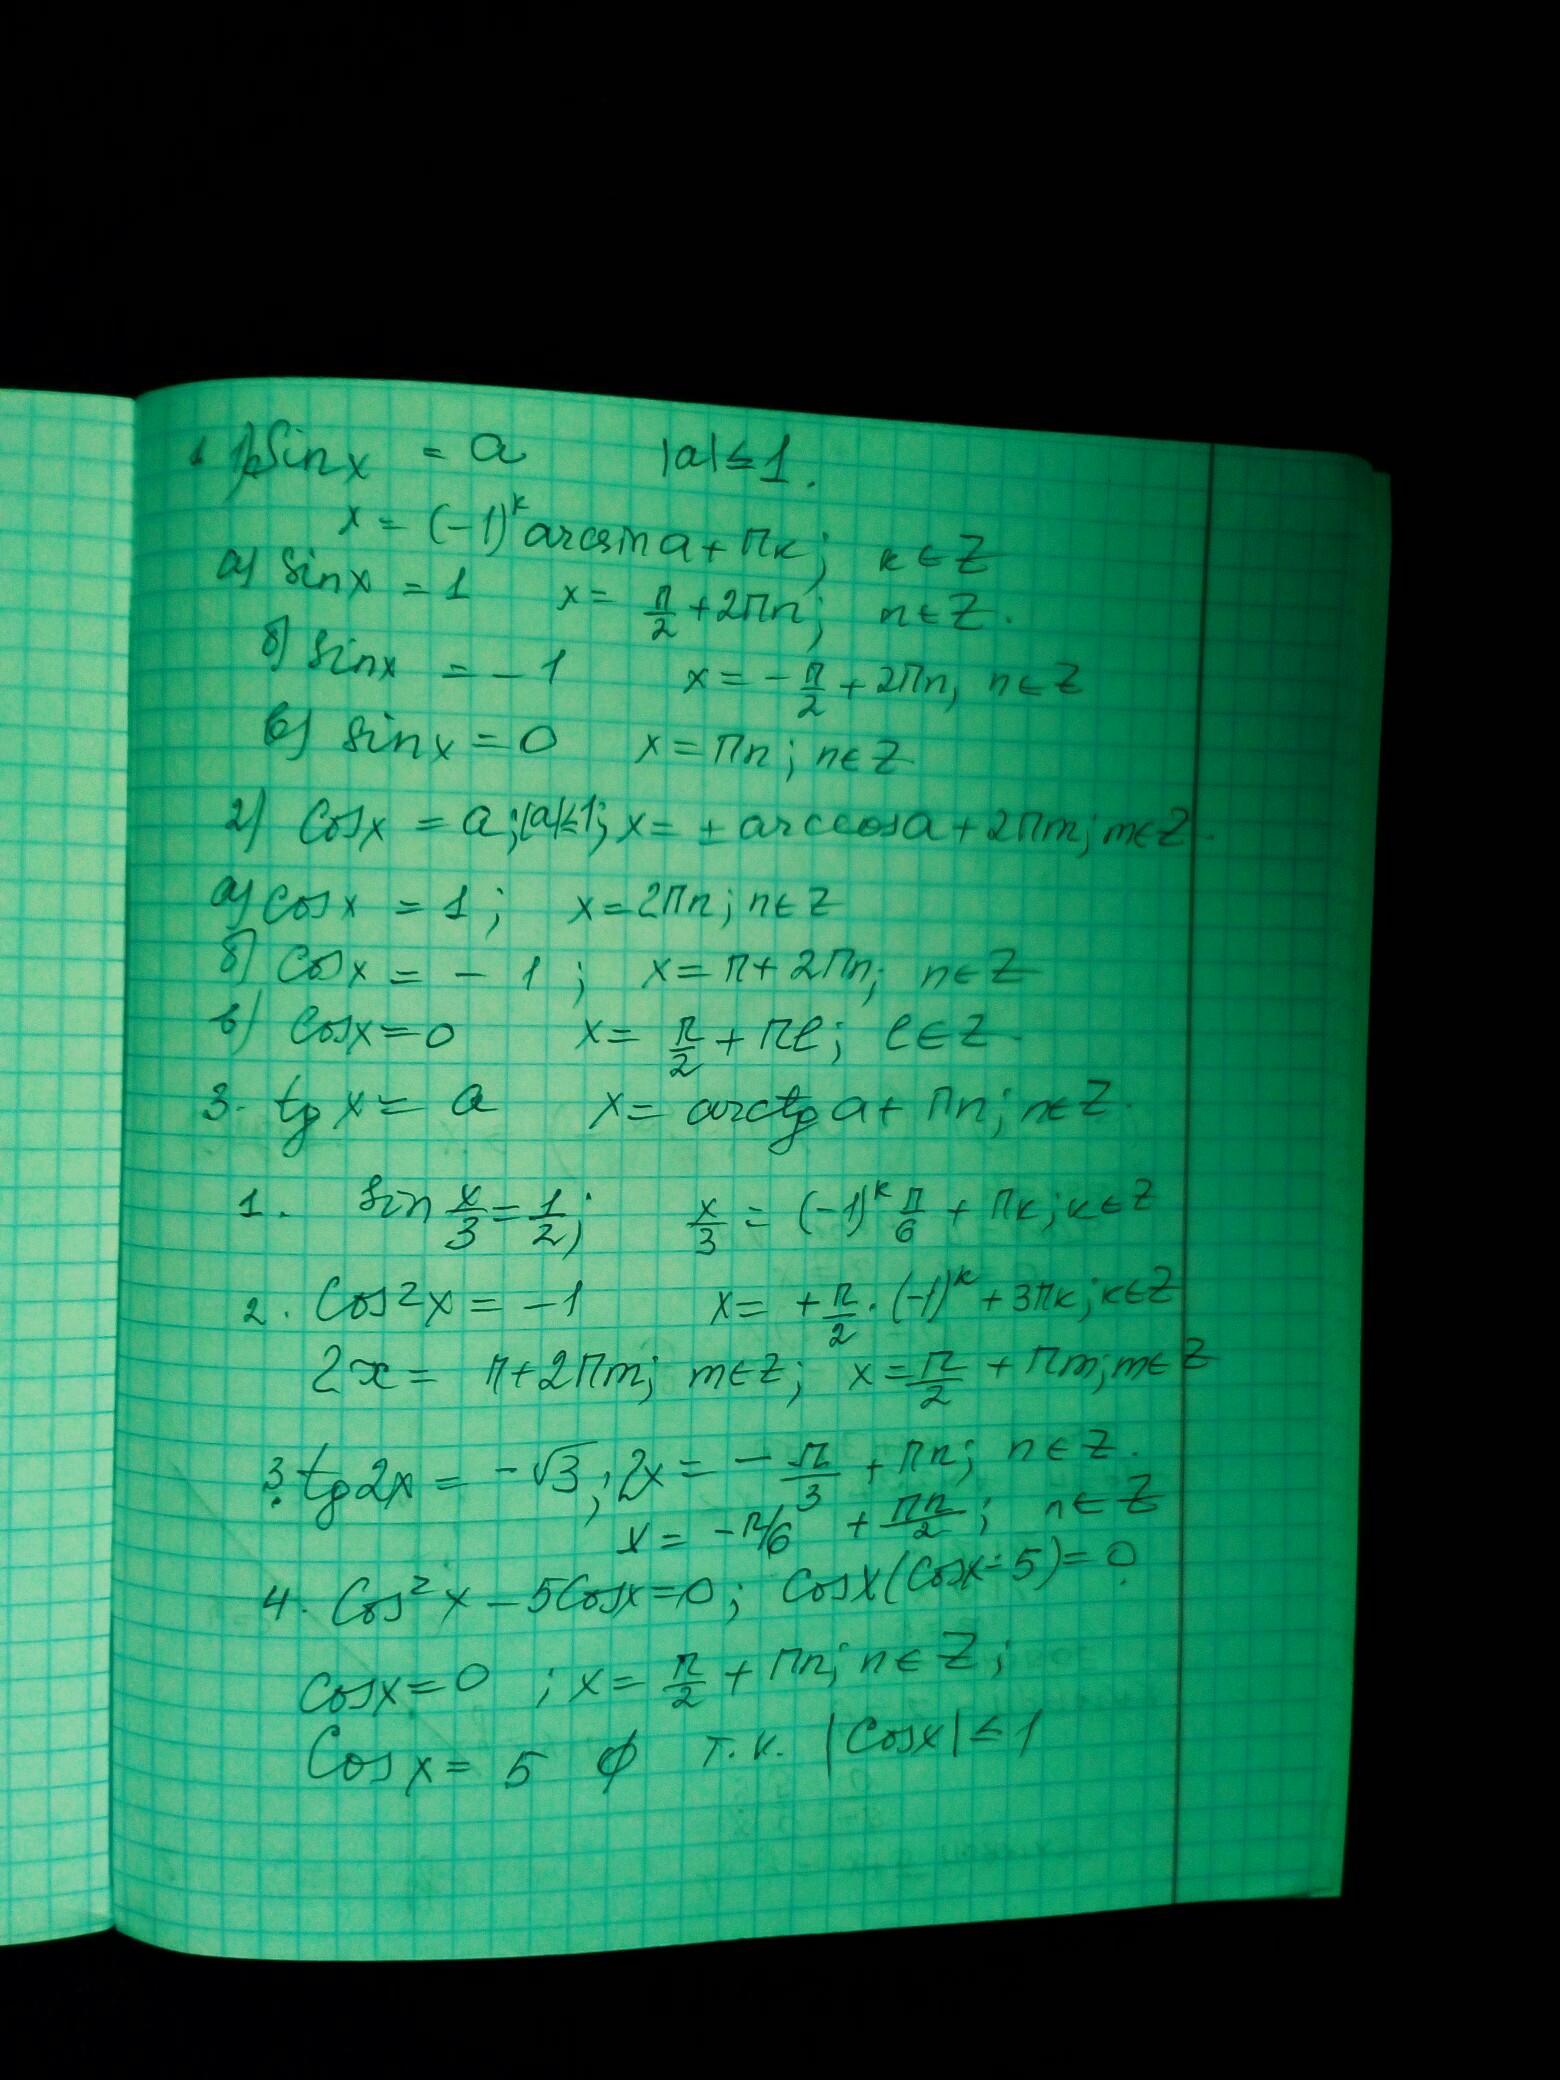 1 1) Sin x = a |a| ≤ 1.
x = (-1)^k arcsin a + πk; k ∈ Z
а) Sin x = 1 x = π/2 + 2πn; n ∈ Z.
б) Sin x = -1 x = -π/2 + 2πn, n ∈ Z
в) sin x = 0 x = πn; n ∈ Z
2) Cos x = a; |a| ≤ 1; x = ± arccos a + 2πm; m ∈ Z.
а) Cos x = 1; x = 2πn; n ∈ Z
б) Cos x = -1; x = π + 2πn; n ∈ Z
в) Cos x = 0 x = π/2 + πl; l ∈ Z.
3. tg x = a x = arctg a + πn; n ∈ Z.
1. Sin x/3 = 1/2; x/3 = (-1)^k π/6 + πk; k ∈ Z
2. Cos 2x = -1 x = + π/2 · (-1)^k + 3πk; k ∈ Z
2x = π + 2πm; m ∈ Z; x = π/2 + πm; m ∈ Z
3. tg 2x = -√3; 2x = -π/3 + πn; n ∈ Z.
x = -π/6 + πn/2; n ∈ Z
4. Cos² x - 5Cos x = 0; Cos x (Cos x - 5) = 0
Cos x = 0; x = π/2 + πn; n ∈ Z;
Cos x = 5 ∅ т.к. |Cos x| ≤ 1